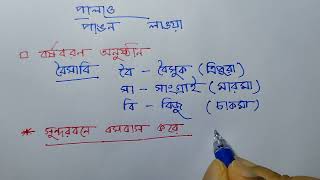 পালাও
পাঙন লাওয়া
□ বর্ষবরন অনুষ্ঠান
বৈসাবি বৈ - বৈসুক (ত্রিপুরা)
সা - সাংগ্রাই (মারমা)
বি - বিজু (চাকমা)
* সুন্দরবনে বসবাস করে